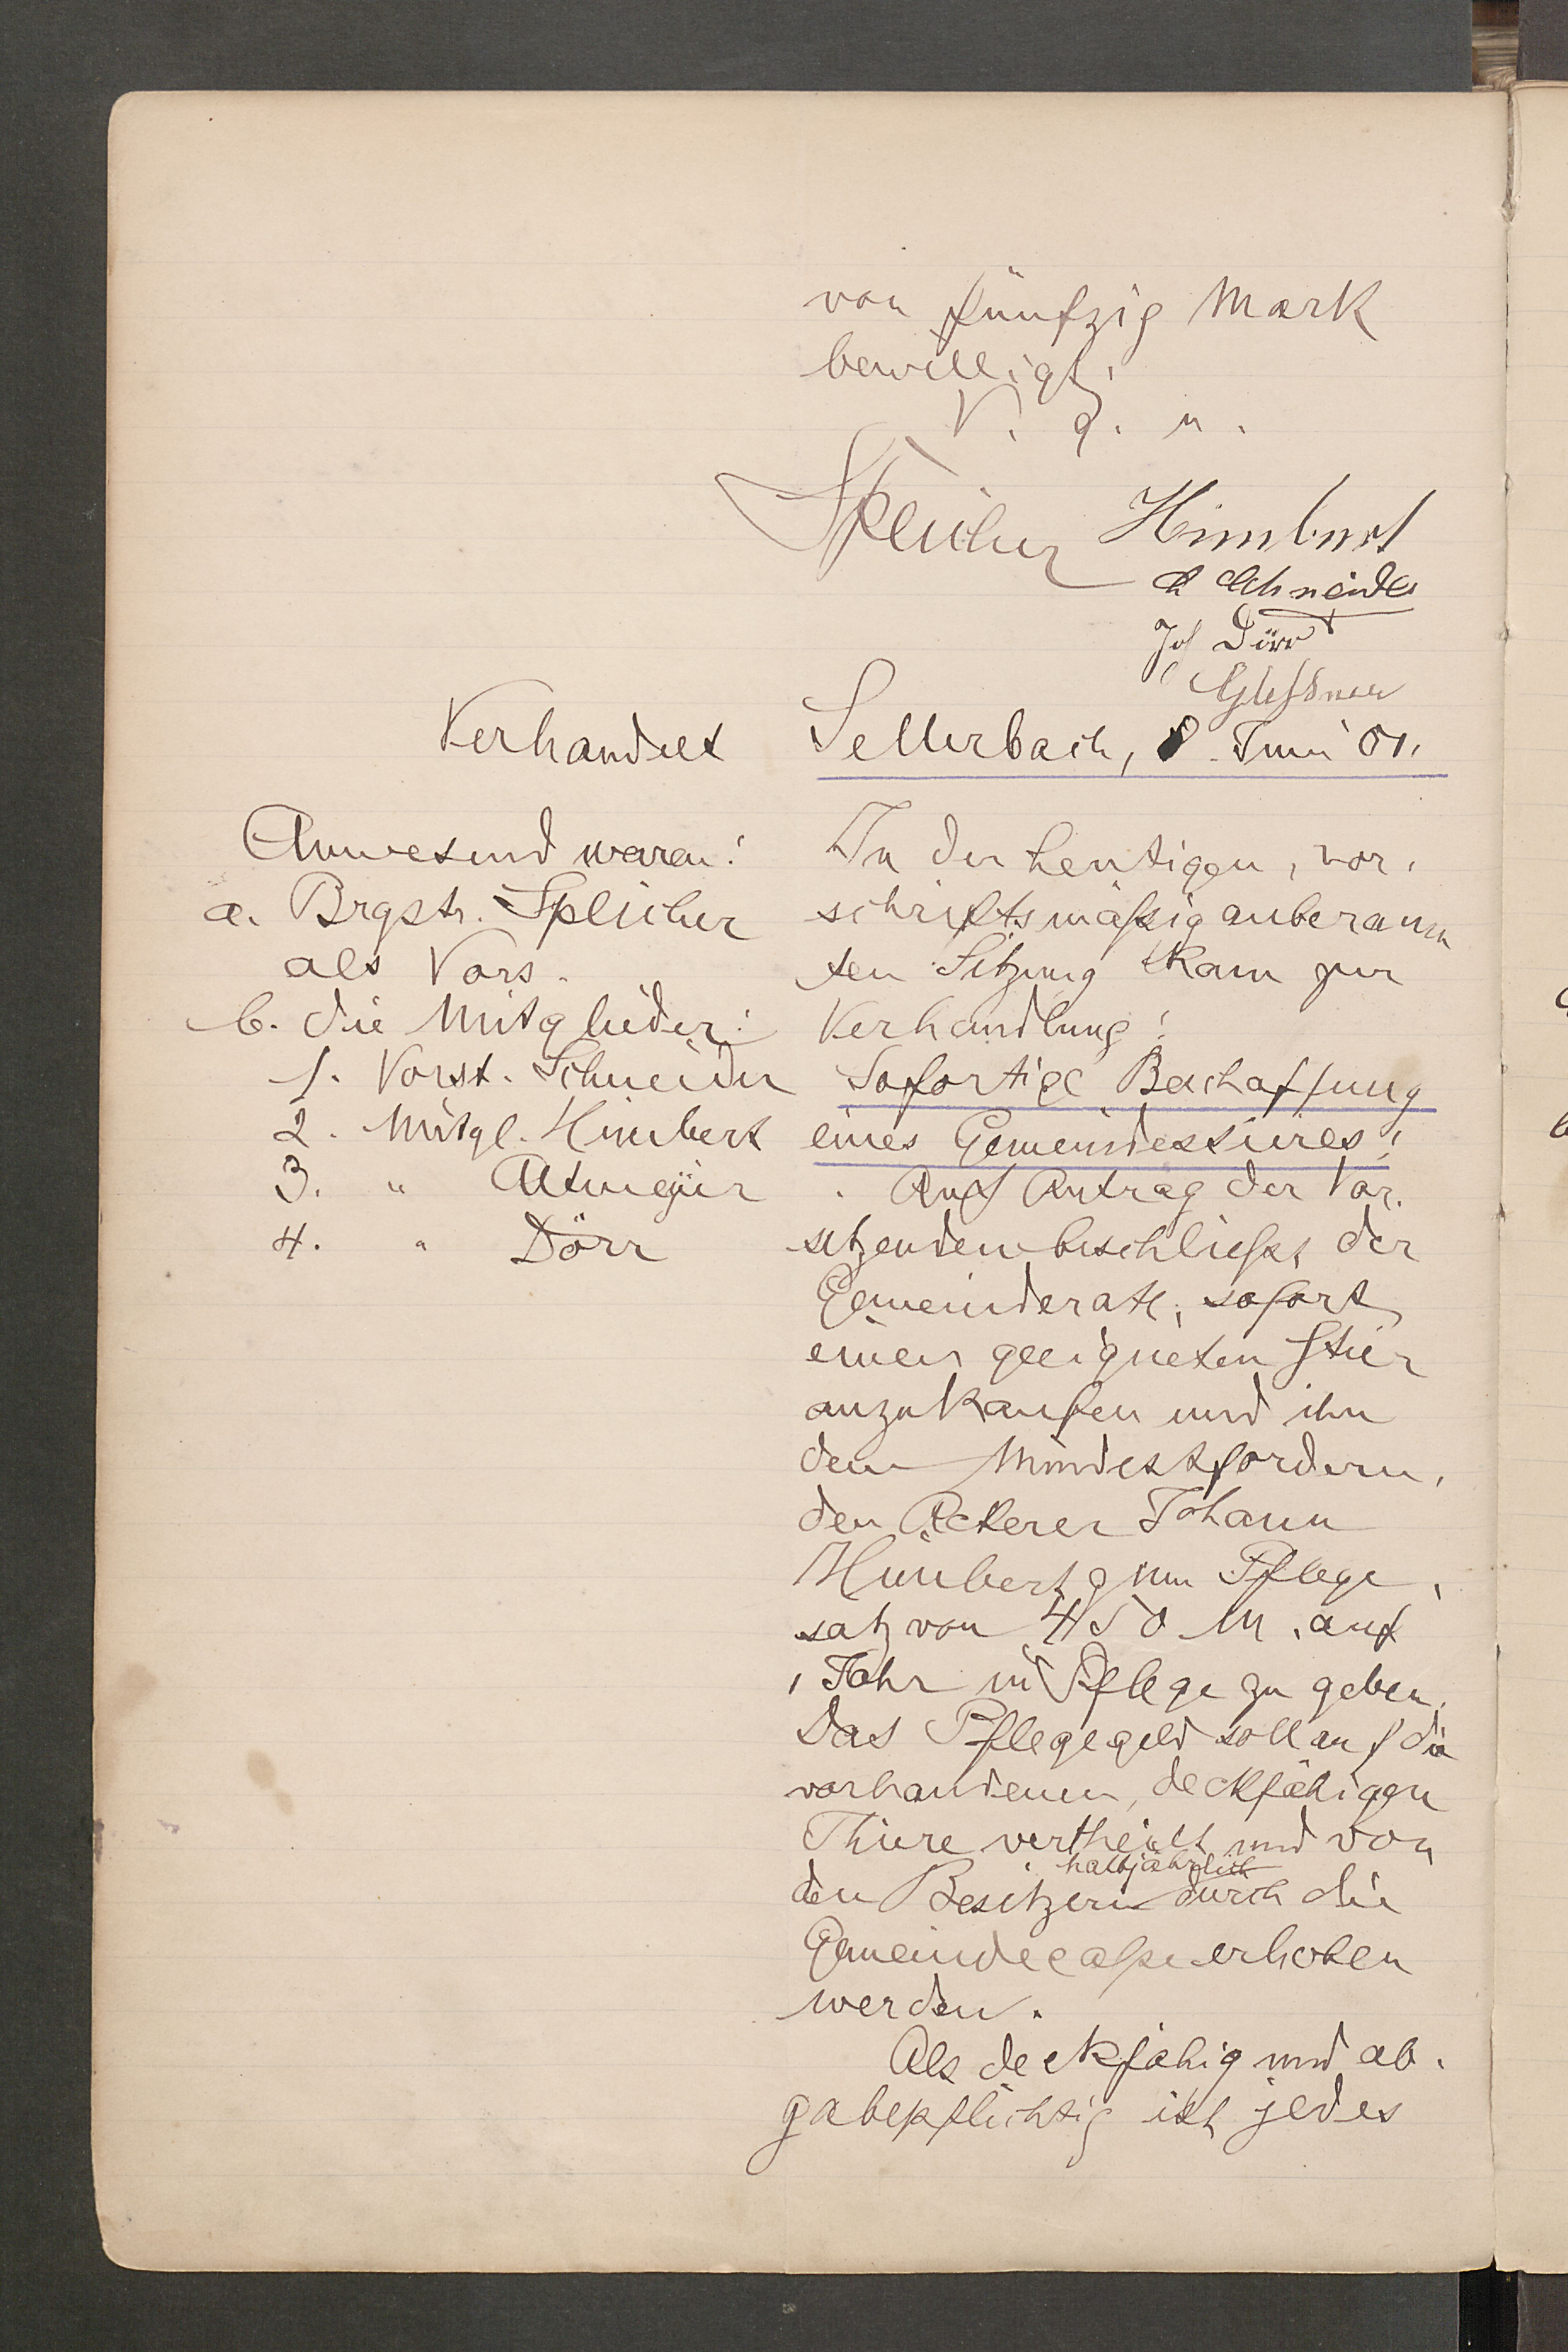 von fünfzig Mark
bewilligt.
V. g. u.
Speicher Himbert
Schneider
Joh Dörr
Verhandelt Sellerbach, 8. Juni 01.
Anwesend waren:
a. Brgstr. Speicher
als Vors.
b. die Mitglieder:
1. Vorst. Schneider
2. Mitgl. Himbert
3. " Altmeyer
4. " Dörr
In der heutigen, vor-
schriftsmäßig anberaum
ten Sitzung kam zur
Verhandlung:
Sofortige Beschaffung
eines Gemeindestieres:
Auf Antrag der Vor-
sitzenden beschließt der
Gemeinderath, sofort
einen geeigneten Stier
anzukaufen und ihn
dem Mindestfordern,
den Ackerer Johann
Himbert zum Pflege-
satz von 450 M. auf
1 Jahr in Pflege zu geben.
Das Pflegegeld soll auf die
vorhandenen, deckfähigen
Thiere vertheilt und von
halbjährlich
den Besitzern durch die
Gemeindecasse erhoben
werden.
Als deckfähig und ab-
gabepflichtig ist jedes